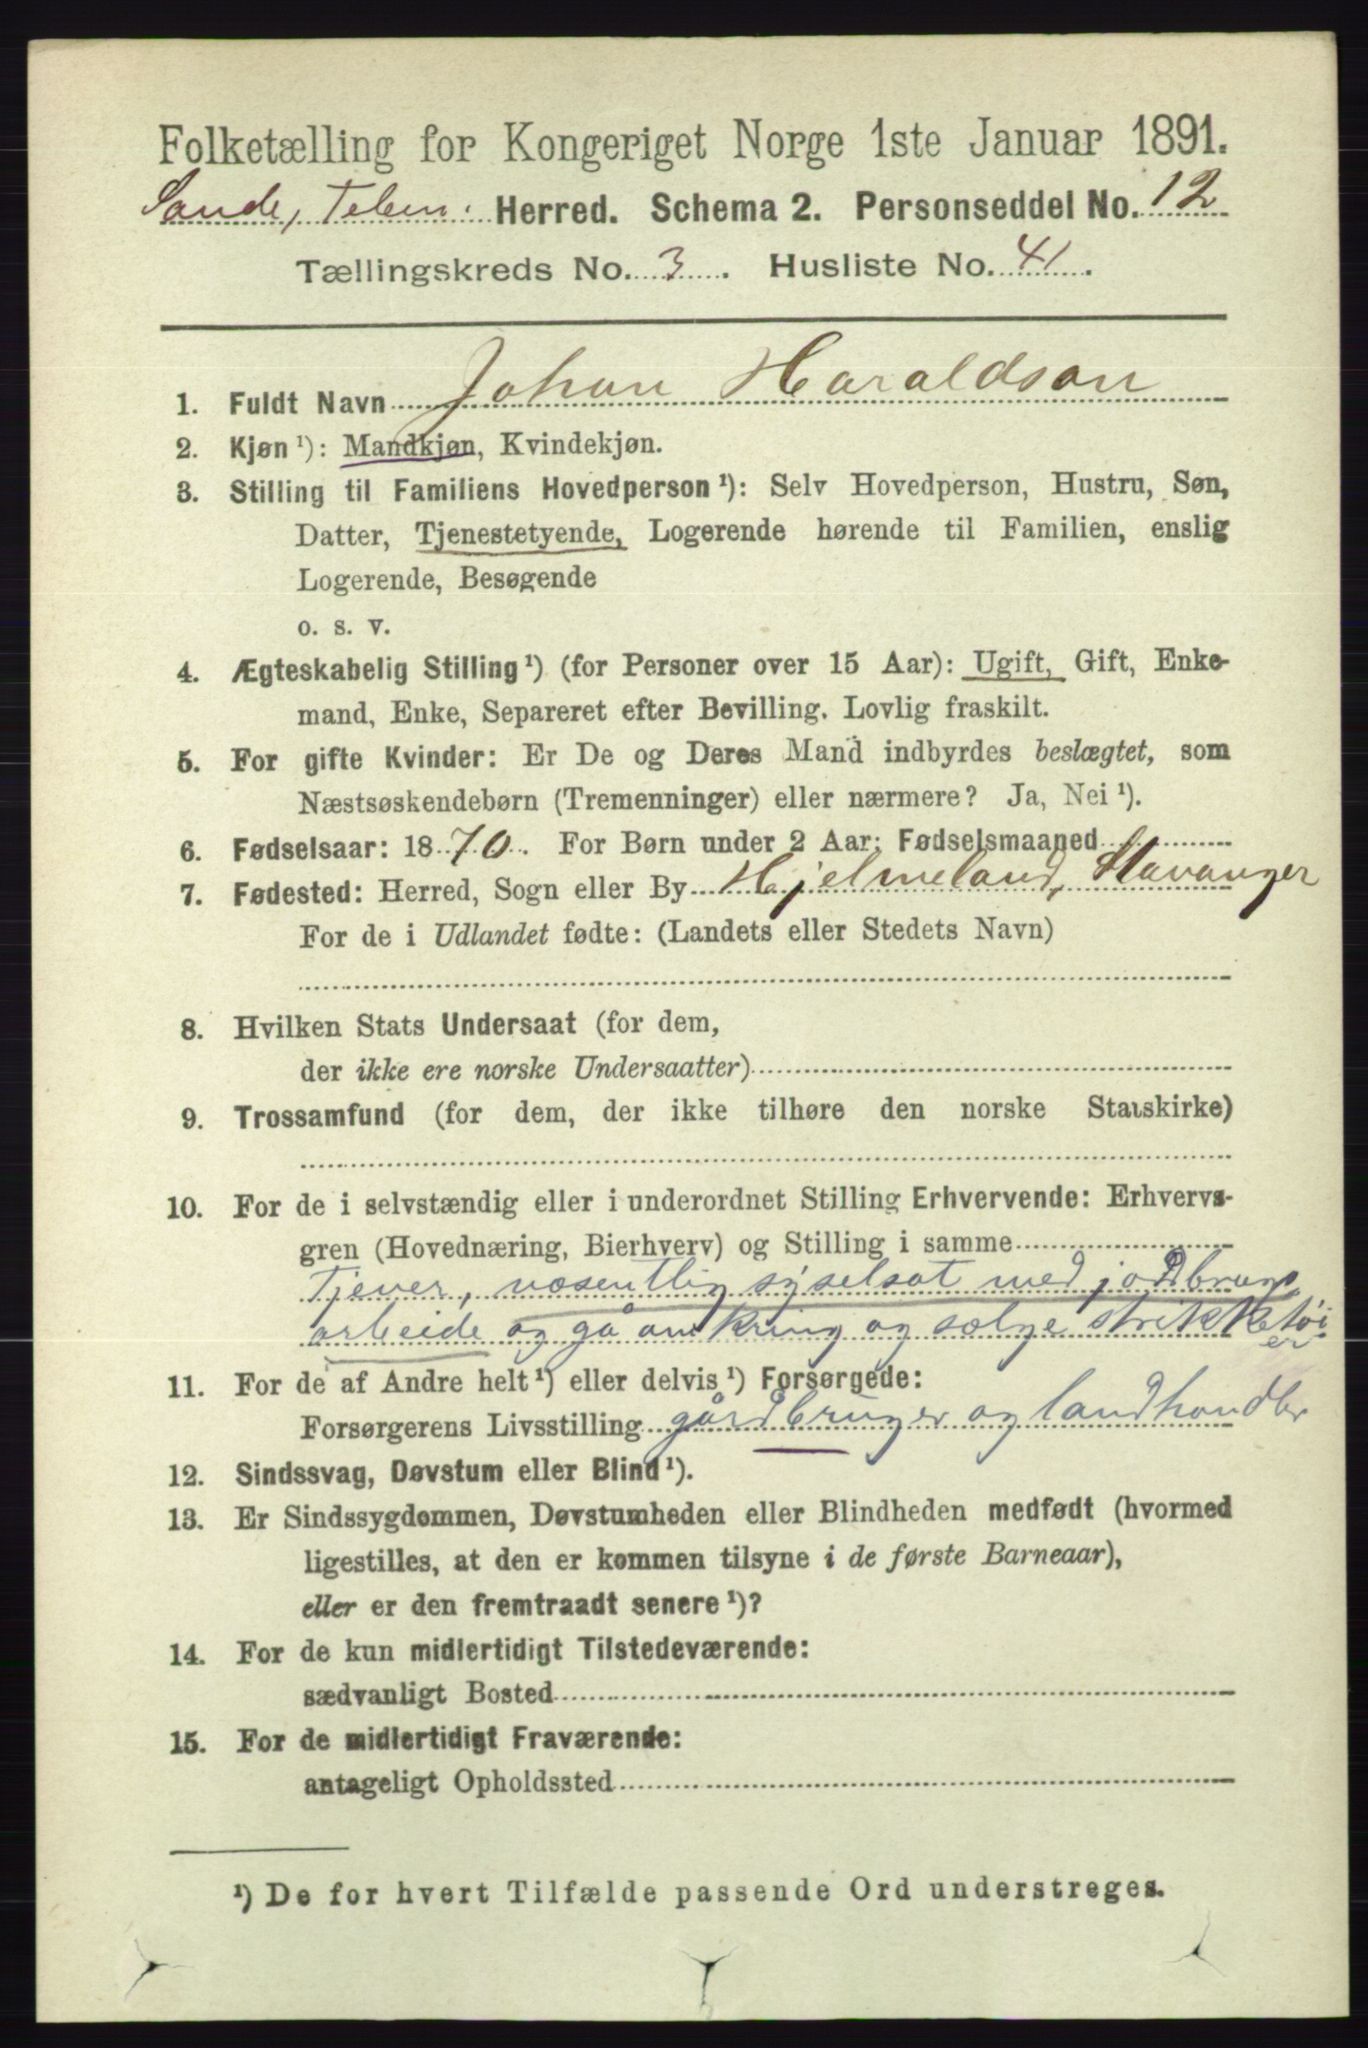 Folketælling for Kongeriget Norge 1ste Januar 1891.
Sande, Herred. Schema 2. Personseddel No. 12
Tællingskreds No. 3. Husliste No. 41.
1. Fuldt Navn Johan Haraldson
2. Kjøn¹): Mandkjøn, Kvindekjøn.
3. Stilling til Familiens Hovedperson¹): Selv Hovedperson, Hustru, Søn,
Datter, Tjenestetyende, Logerende hørende til Familien, enslig
Logerende, Besøgende
o. s. v.
4. Ægteskabelig Stilling¹) (for Personer over 15 Aar): Ugift, Gift, Enke-
mand, Enke, Separeret efter Bevilling. Lovlig fraskilt.
5. For gifte Kvinder: Er De og Deres Mand indbyrdes beslægtet, som
Næstsøskendebørn (Tremenninger) eller nærmere? Ja, Nei¹).
6. Fødselsaar: 1870. For Børn under 2 Aar: Fødselsmaaned
7. Fødested: Herred, Sogn eller By Hjelmeland, Stavanger
For de i Udlandet fødte: (Landets eller Stedets Navn)
8. Hvilken Stats Undersaat (for dem,
der ikke ere norske Undersaatter)
9. Trossamfund (for dem, der ikke tilhøre den norske Statskirke)
10. For de i selvstændig eller i underordnet Stilling Erhvervende: Erhvervs-
gren (Hovednæring, Bierhverv) og Stilling i samme
Tjener, væsentlig syselsat med jordbrugs
arbeide og gå omkring og sælge strikketøi
er
11. For de af Andre helt¹) eller delvis¹) Forsørgede:
Forsørgerens Livsstilling gårdbruger og landhandler
12. Sindssvag, Døvstum eller Blind¹).
13. Er Sindssygdommen, Døvstumheden eller Blindheden medfødt (hvormed
ligestilles, at den er kommen tilsyne i de første Barneaar),
eller er den fremtraadt senere¹)?
14. For de kun midlertidigt Tilstedeværende:
sædvanligt Bosted
15. For de midlertidigt Fraværende:
antageligt Opholdssted
¹) De for hvert Tilfælde passende Ord understreges.